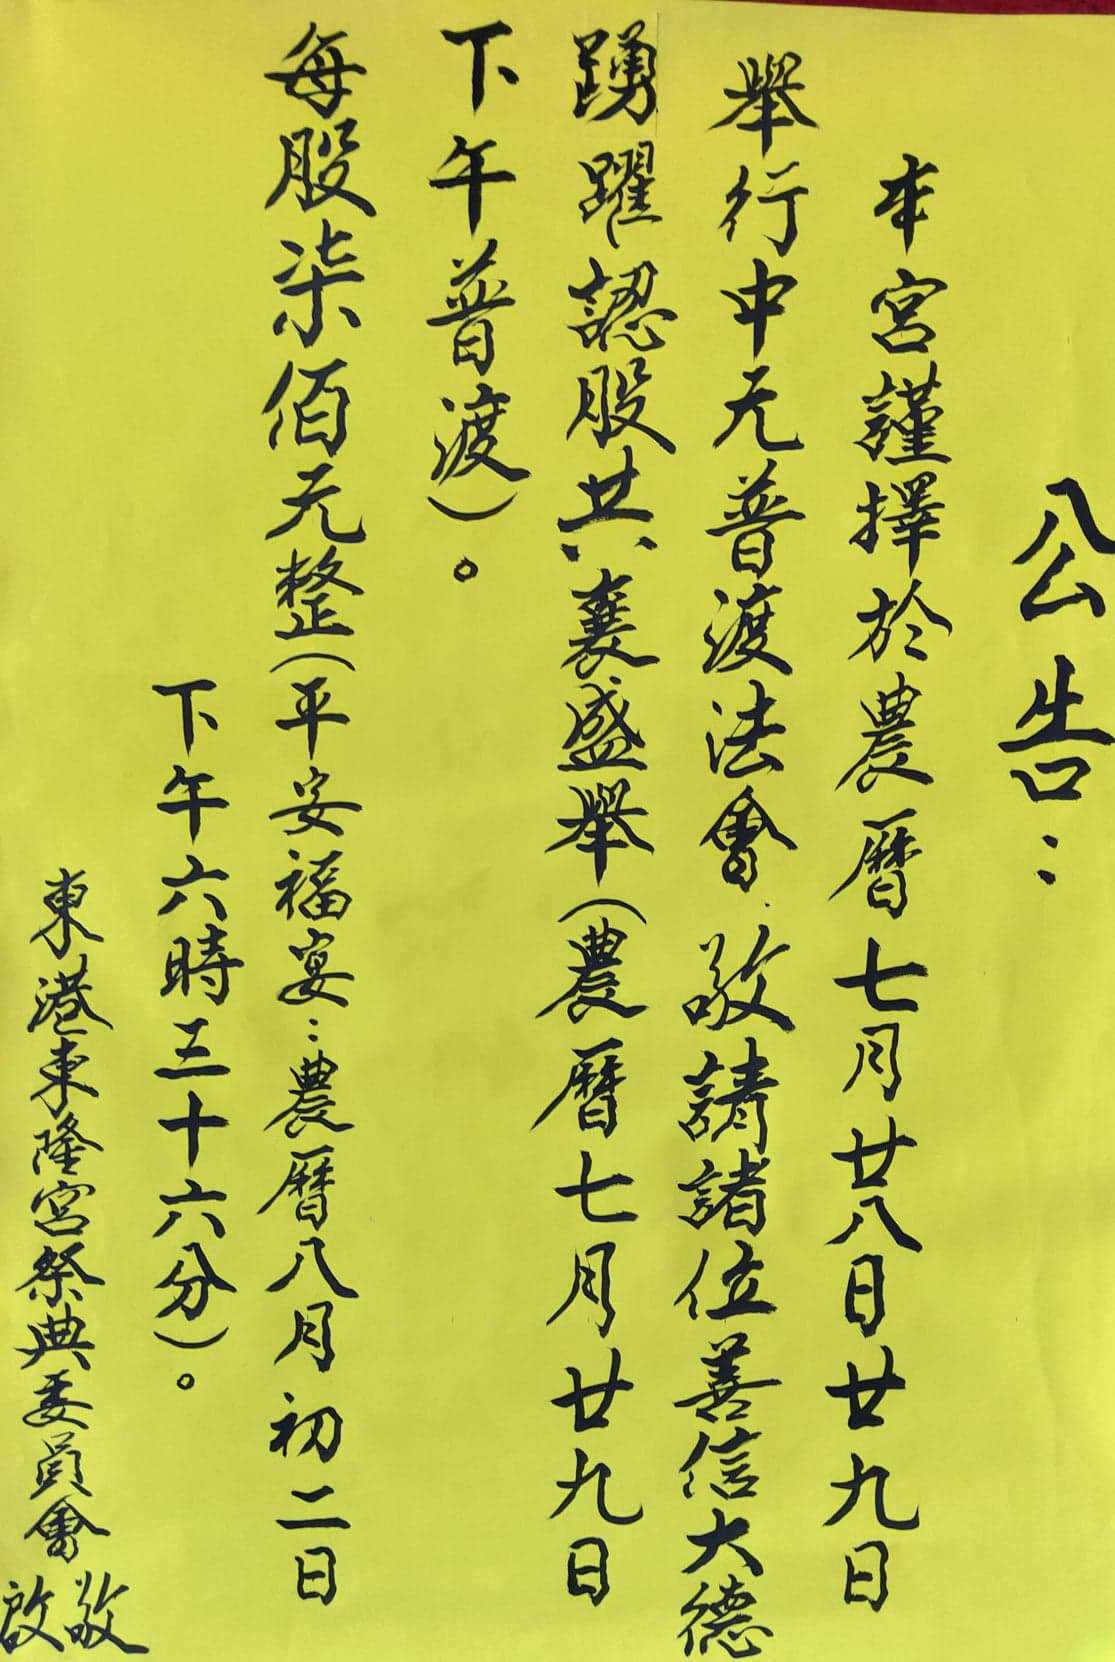 公告：
本宮謹擇於農曆七月廿八日廿九日
舉行中元普渡法會．敬請諸位善信大德
踴躍認股共襄盛舉（農曆七月廿九日
下午普渡）。
每股柒佰元整（平安福宴：農曆八月初二日
下午六時三十六分）。
東港東隆宮祭典委員會敬啟